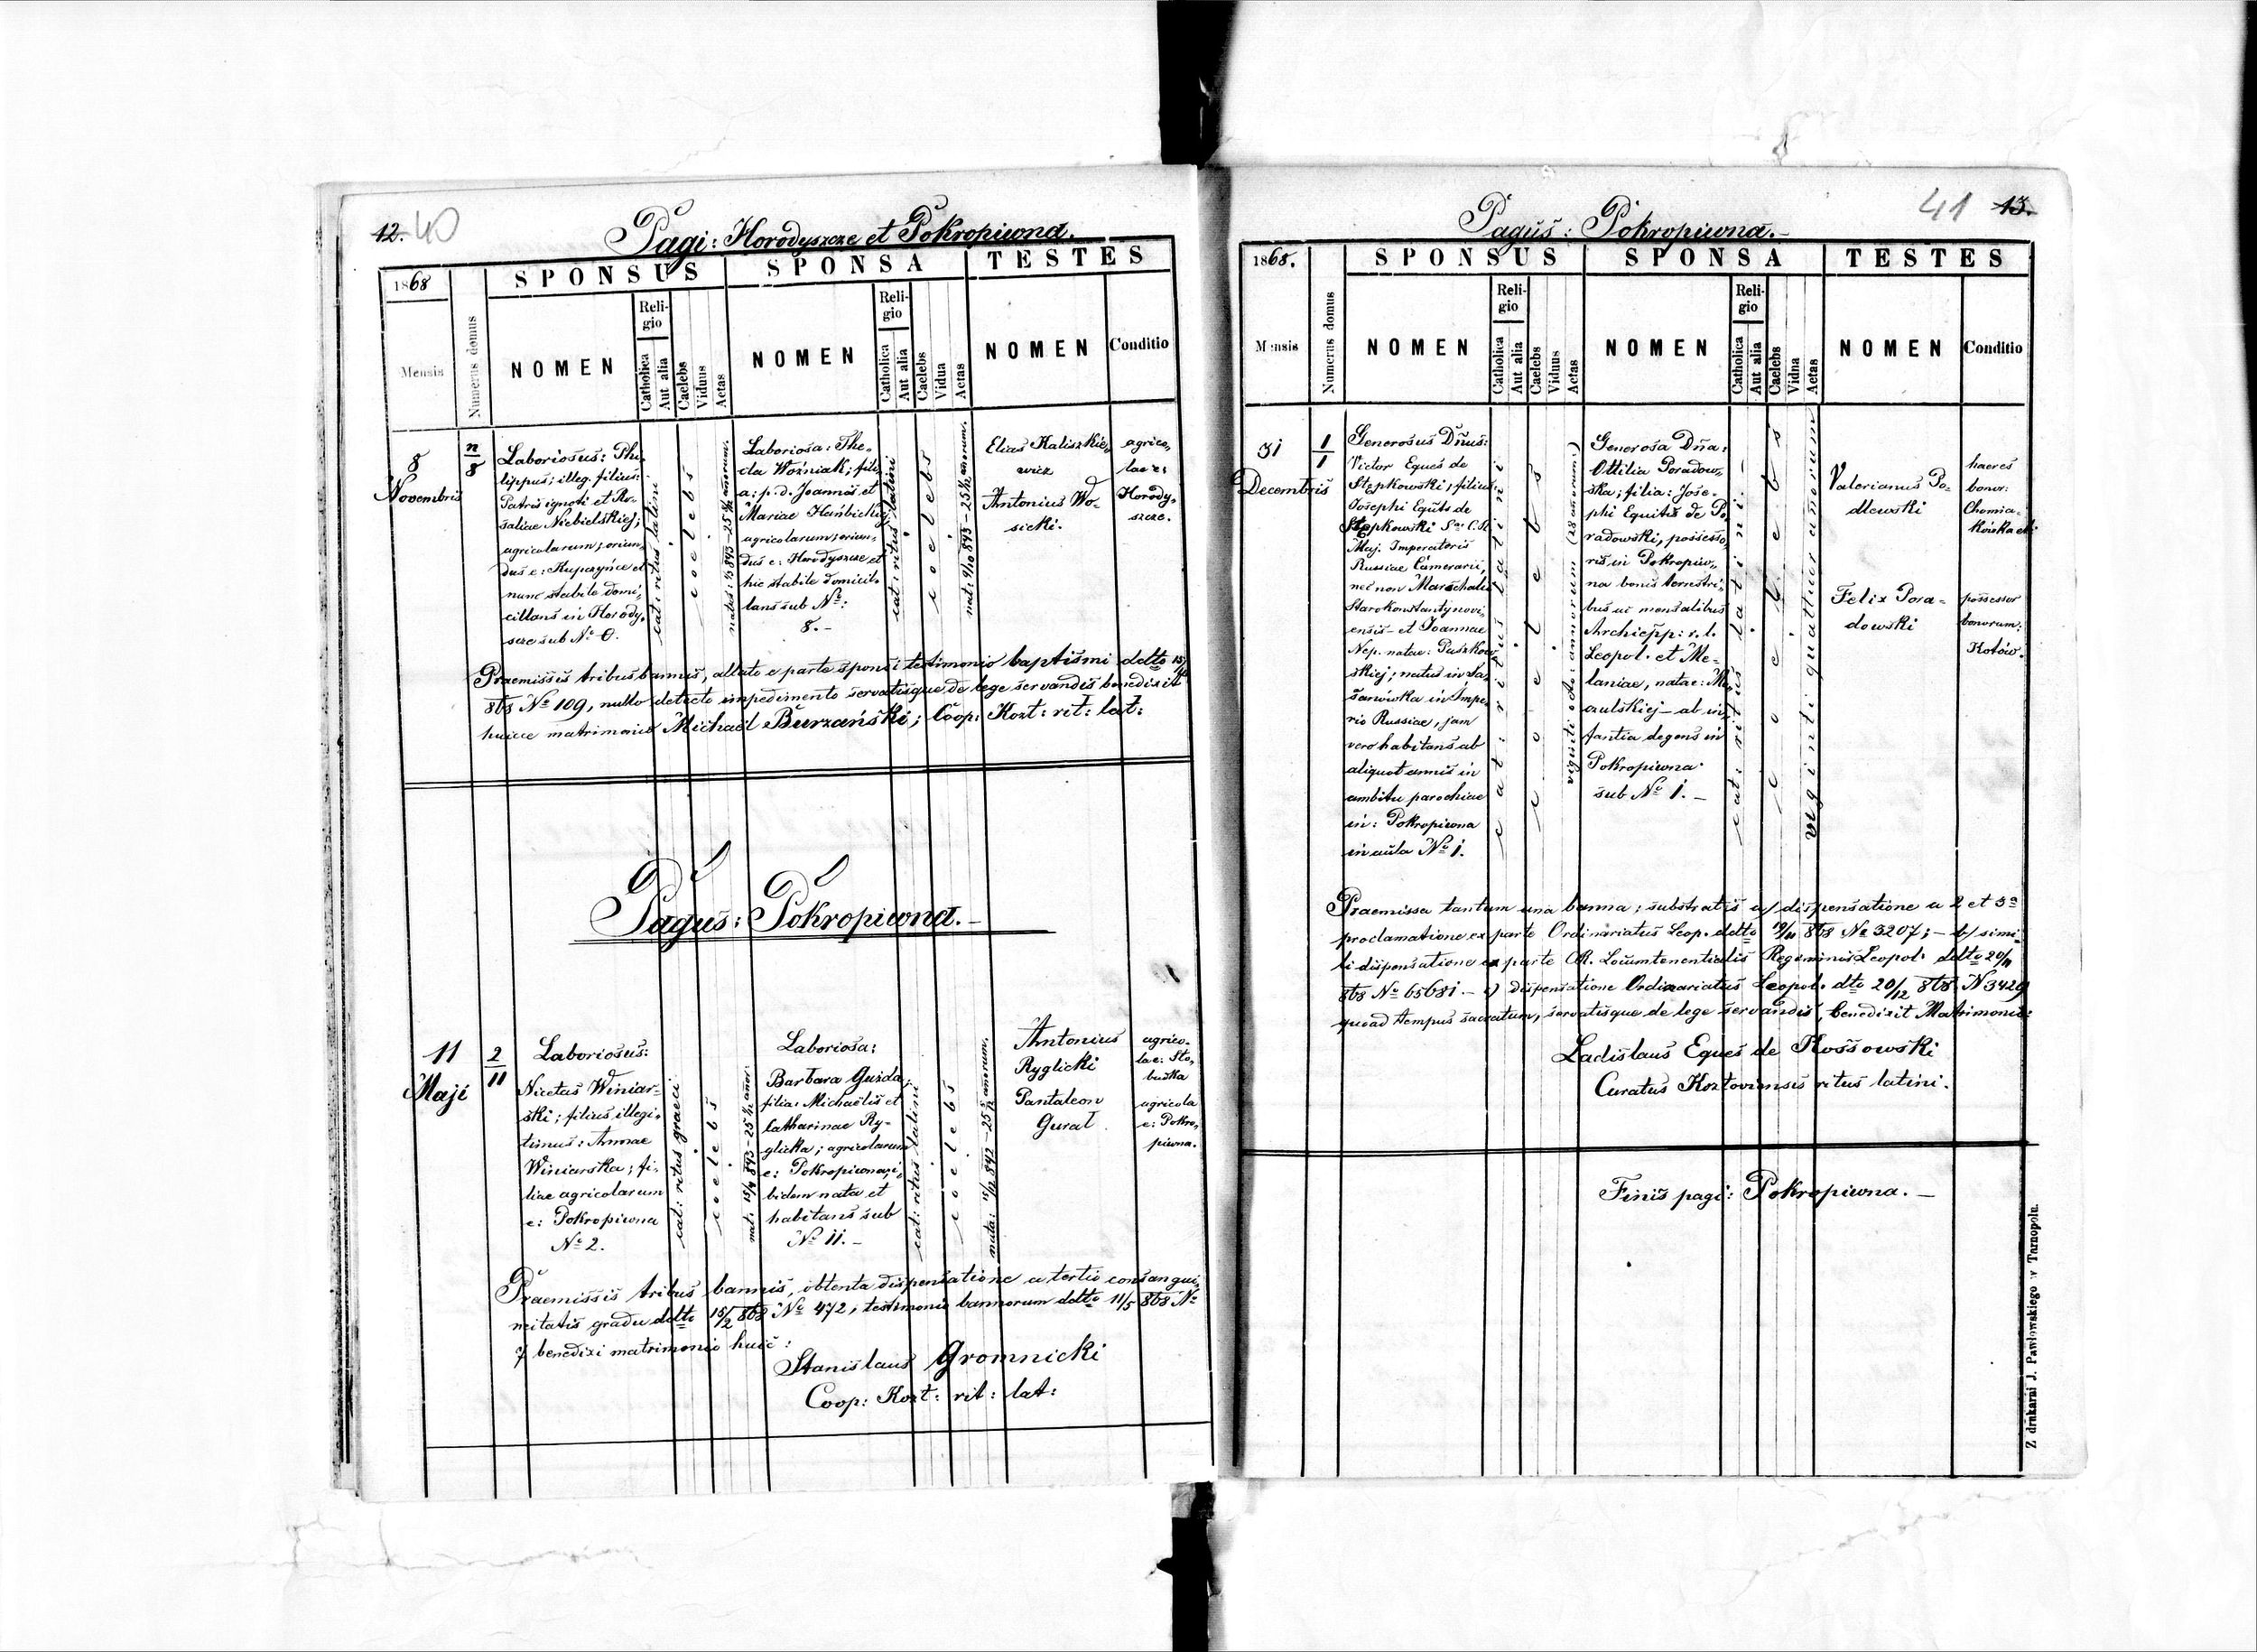 12. 40
Pagi: Horodyszcze et Pokropiwna.
1868
SPONSUS
SPONSA
TESTES
Mensis
Numerus domus
NOMEN
Religio
Catholica
Aut alia
Caelebs
Viduus
Aetas
NOMEN
Religio
Catholica
Aut alia
Caelebs
Vidua
Aetas
NOMEN
Conditio
8
Novembris
n/8
Laboriosus: Phi-
lippus; illeg. filius:
Patris ignoti et Ro-
saliae Niebielskiej;
agricolarum; oriun-
dus e: Kupczyńce et
nunc stabile domi-
cillans in Horody-
szcze sub No 0.
cat: ritus latini
coelebs
25 ½ anorum.
Laboriosa: The-
cla Woźniak; fili-
a: p. d. Joannis et
Mariae
agricolarum; oriun-
dus e: Horodyszcze et
hic stabile domicil-
lans sub No:
8.-
cat: ritus latini
coelebs
nat: 9/10 843 - 25 ½ anorum.
Elias Kaliszkie-
wicz
Antonius Wo-
sicki.
agrico-
lae e:
Horody-
szcze.
Praemissis tribus bannis, allato e parte sponsi testimonio baptismi ddto
868 No 109, nullo detecto impedimento servatisque de lege servandis benedixit
huicce matrimonio Michaël Burzański; Coop: Kozt: rit: lat:
Pagus: Pokropiwna.-
11
Maji
2/11
Laboriosus:
Nicetas Winiar-
ski; filius illegi-
timus: Annae
Winiarska; fi-
liae agricolarum
e: Pokropiwna
No 2.
cat: ritus graeci
coelebs
nat: 15/4 843 - 25 ½ anor:
Laboriosa:
Barbara Guzda;
filia: Michaëlis et
Catharinae Ry-
glicka; agricolarum
e: Pokropiwna; i-
bidem nata et
habitans sub
No 11.-
cat: ritus latini
coelebs
nata: 15/12 842 - 25 5/12 anorum.
Antonius
Ryglicki
Pantaleon
Gural
agrico-
la e: Sto-
budka
agricola
e: Pokro-
piwna.
Praemissis tribus bannis, obtenta dispensatione a tertio consangui-
neitatis gradu ddto 15/2 868 No 472, testimonio bannorum ddto 11/5 868 No
7 benedixi matrimonio huic:
Stanislaus Gromnicki
Coop: Kozt: rit: lat:
41 13.
Pagus: Pokropiwna.-
1868.
SPONSUS
SPONSA
TESTES
Mensis
Numerus domus
NOMEN
Religio
Catholica
Aut alia
Caelebs
Viduus
Aetas
NOMEN
Religio
Catholica
Aut alia
Caelebs
Vidua
Aetas
NOMEN
Conditio
31
Decembris
1/1
Generosus Dñus:
Victor Eques de
Stępkowski; filius:
Josephi Equits de
Stępkowski
Maj. Imperatoris
Russiae Camerarii,
nec non Marschalii
Starokonstantynovi-
ensis - et Joannae
Nep. natae: Paszkow-
skiej; natus in Sa-
sanówka in Impe-
rio Russiae, jam
vero habitans ab
aliquot annis in
ambitu parochiae
in: Pokropiwna
in aula No 1.
cat: ritus latini
coelebs
viginti octo annorum (28 anorum.)
Generosa Dña:
Ottilia Poradow-
ska; filia: Jose-
phi Equitis de Po-
radowski, possesso-
ris in Pokropiw-
na bonis terrestri-
bus ac mensalibus
Archiepp: r. l.
Leopol. et Me-
laniae, natae:
ab in-
fantia degens in
Pokropiwna
sub No 1.-
cat: ritus latini.
coelebs
viginti quattuor anorum
Valerianus Po-
dlewski
Felix Pora-
dowski
haeres
bonor:
Chomia-
kówka
possessor
bonorum:
Kotów.
Praemissa tantum una banna; substratis a/ dispensatione a 2 et 3a
proclamatione ex parte Ordinariatus Leop. ddto 19/11 868 No 3207;- b/ simi-
li dispensatione ex parte CR. Locumtenentialis Regiminis Leopol. ddto 20/11
868 No 65681.- c) dispensatione Ordinariatus Leopol. dto 20/12 868 N 3429
quoad tempus sacratum, servatisque de lege servandis, benedixit Matrimonio:
Ladislaus Eques de Kossowski
Curatus Koztoviensis ritus latini.
Finis pagi: Pokropiwna.-
Z drukarni J. Pawłowskiego w Tarnopolu.